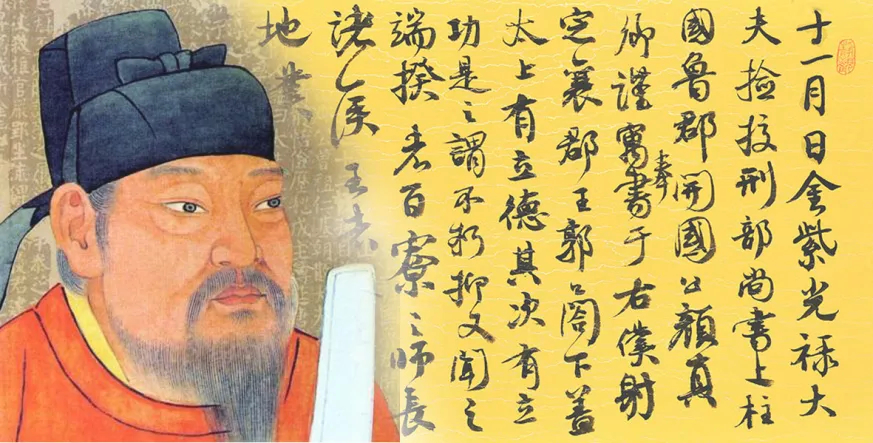 十一月日金紫光祿大
夫撿挍刑部尚書上柱
國魯郡開國公顏真
卿謹寓奉書于右僕射
定襄郡王郭公閤下蓋
太上有立德其次有立
功是之謂不朽抑又聞之
端揆者百寮之師長
諸侯王者
地